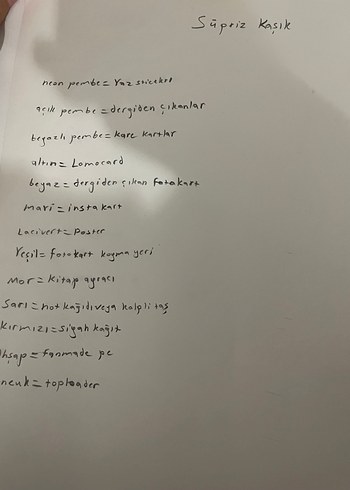 Süpriz Kaşık
neon pembe = Yaz sticekrt
açık pembe = dergiden çıkanlar
beyazlı pembe = kare kartlar
altın = Lomocard
beyaz = dergiden çıkan fotokart
mavi = instakart
Lacivert = Poster
Yeşil = fotokart koyma yeri
Mor = kitap ayracı
Sarı = not kağıdı veya kalpli taş
Kırmızı = siyah kağıt
hşap = fanmade pc
neuk = toploader